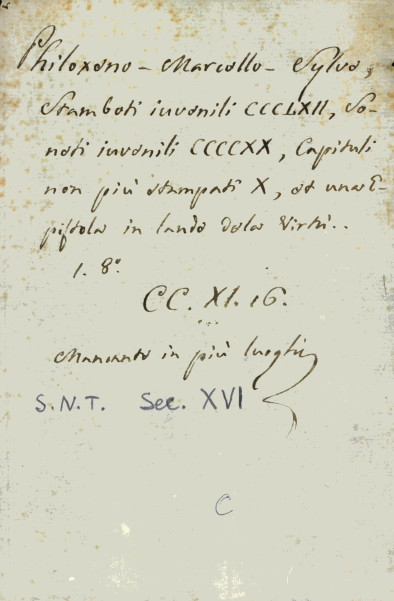 Philoxeno - Marcello - Sylve,
Stamboti iuvenili CCCLXII, So-
neti iuvenili CCCCXX, Capituli
non più stampati X, et una E-
pistola in laude dela Virtù..
1. 8°.
CC. XI. 16.
Mancante in più luoghi
S.N.T. Sec. XVI
C